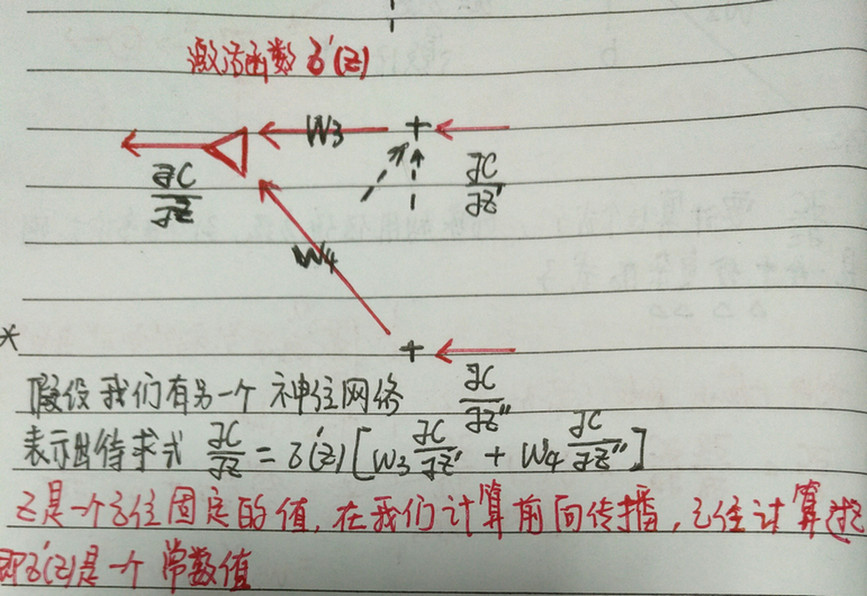 激活函数 δ'(z)
W3
∂C/∂z
∂C/∂z'
W4
∂C/∂z''
假设我们有另一个神经网络
表示出待求式 ∂C/∂z = δ'(z) [W3 ∂C/∂z' + W4 ∂C/∂z'']
z是一个已经固定的值,在我们计算前向传播,已经计算过
即δ'(z)是一个常数值